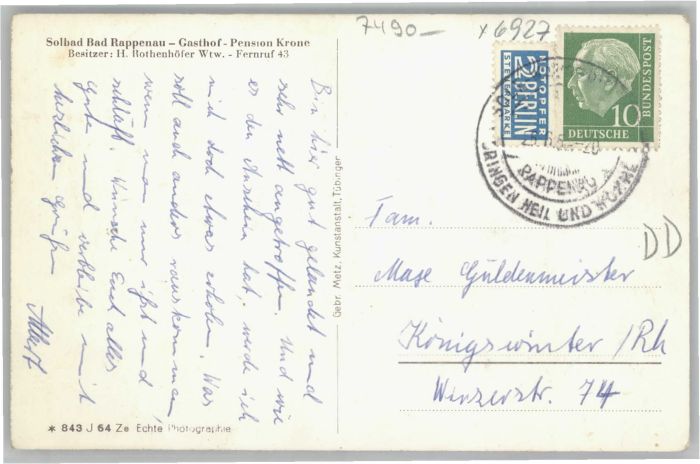 Solbad Bad Rappenau – Gasthof - Pension Krone
Besitzer: H. Rothenhöfer Wtw. - Fernruf 43
Bin hier gut gelandet und
sehr nett angetroffen. Und wie
es den Anschein hat, werde ich
mich doch etwas erholen. Was
soll auch anders rauskommen,
wenn man nur ißt und
schläft. Wünsche Euch alles
Gute und verbleibe mit
herzlichen Grüßen
Albert
* 843 J 64 Ze Echte Photographie
Gebr. Metz, Kunstanstalt, Tübingen
7490—
x 6927
NOTOPFER
2 BERLIN
STEUERMARKE
DEUTSCHE
BUNDESPOST
10
RAPPENAU
BRINGEN HEIL UND
DD
Fam.
Mase Güldenmeister
Königswinter /Rh
Winzerstr. 74